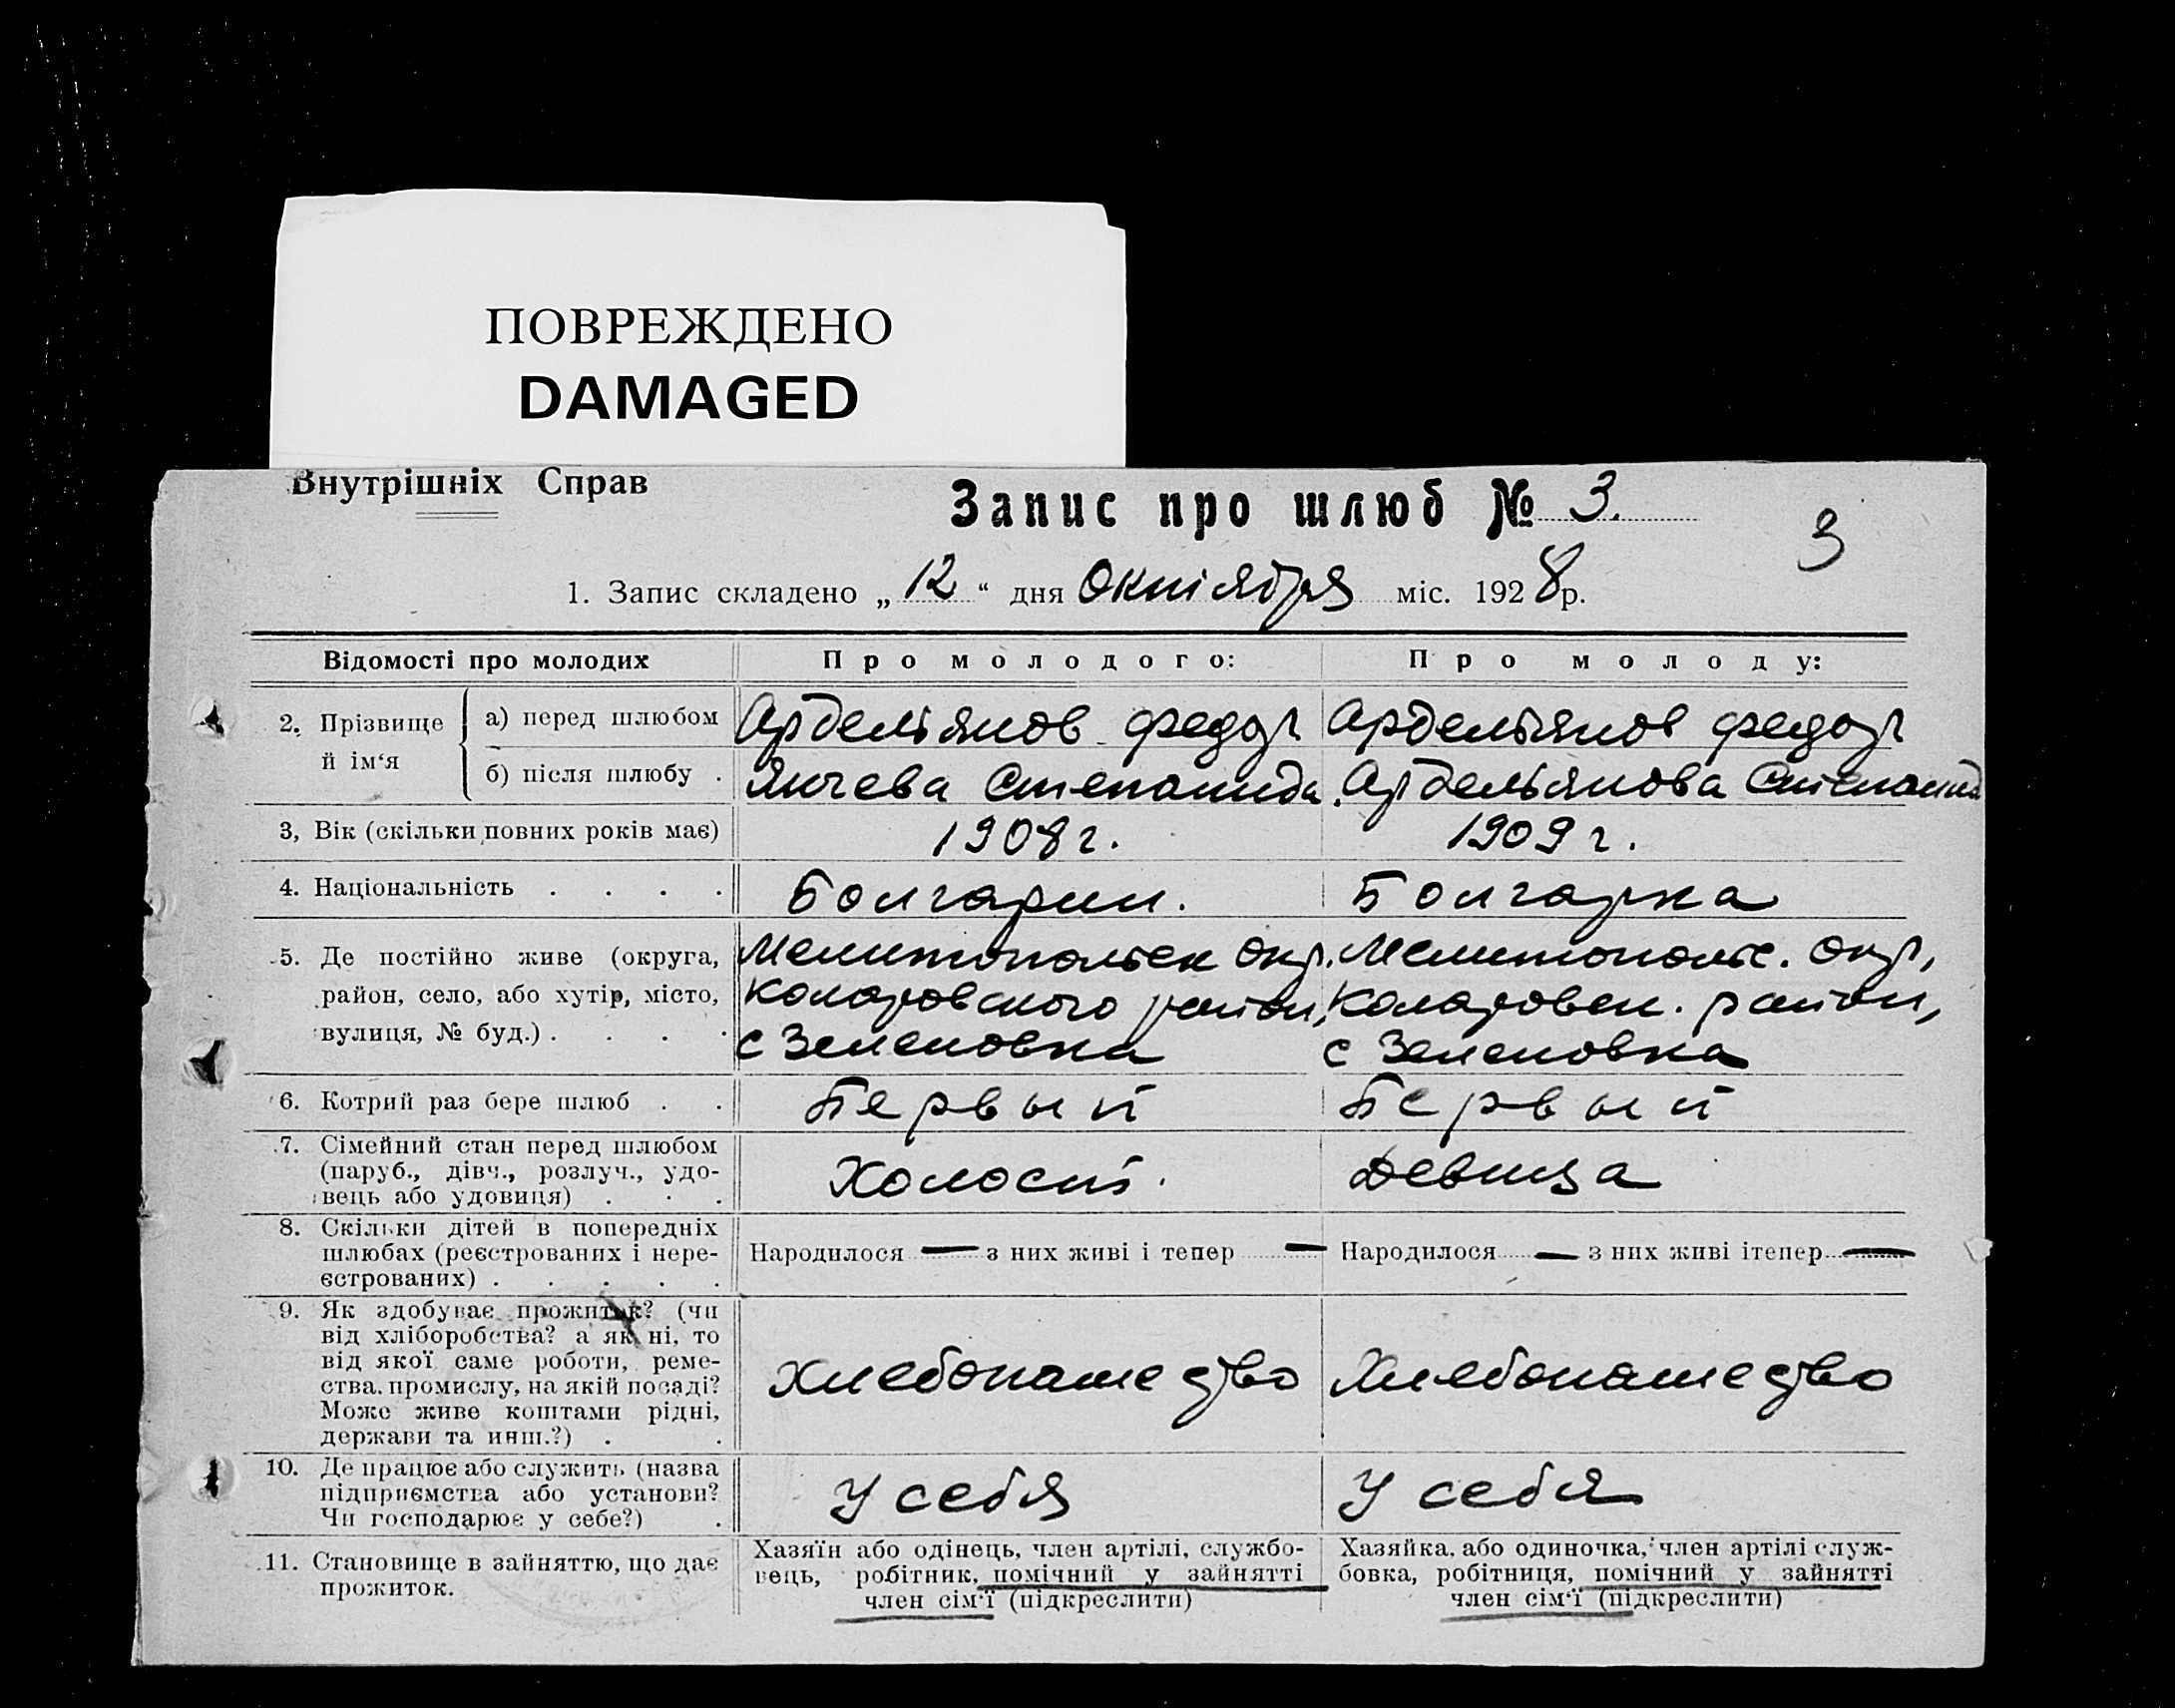 ПОВРЕЖДЕНО
DAMAGED
Внутрішніх Справ
Запис про шлюб № 3.
3
1. Запис складено „ 12 “ дня Октября міс. 1928 р.
Відомості про молодих Про молодого: Про молоду:
2. Прізвище й ім‘я
а) перед шлюбом Ардельянов Федор Ардельянов Федор
б) після шлюбу . Янчева Степанида. Ардельянова Степанида
3, Вік (скільки повних років має) 1908 г. 1909 г.
4. Національність . . . . Болгарин. Болгарка
5. Де постійно живе (округа, Мелитопольск Окр. Мелитопольс. Окр,
район, село, або хутір, місто, Коларовского район, Коларовск. район,
вулиця, № буд.) . . . . с Зеленовка с Зеленовка
6. Котрий раз бере шлюб . . Первый Первый
7. Сімейний стан перед шлюбом
(паруб., дівч., розлуч., удо- Холост. Девица
вець або удовиця) . . .
8. Скільки дітей в попередніх
шлюбах (реєстрованих і нере- Народилося — з них живі і тепер — Народилося — з них живі ітепер —
єстрованих) . . . . .
9. Як здобуває прожиток? (чи
від хліборобства? а як ні, то
від якої саме роботи, реме-
ства, промислу, на якій посаді? Хлебопашество Хлебопашество
Може живе коштами рідні,
держави та инш.?) . .
10. Де працює або служить (назва
підприємства або установи? У себя У себя
Чи господарює у себе?) .
11. Становище в зайняттю, що дає
прожиток.
Хазяїн або одінець, член артілі, службо-
вець, робітник, помічний у зайнятті
член сім‘ї (підкреслити)
Хазяйка, або одиночка, член артілі служ-
бовка, робітниця, помічний у зайнятті
член сім‘ї (підкреслити)